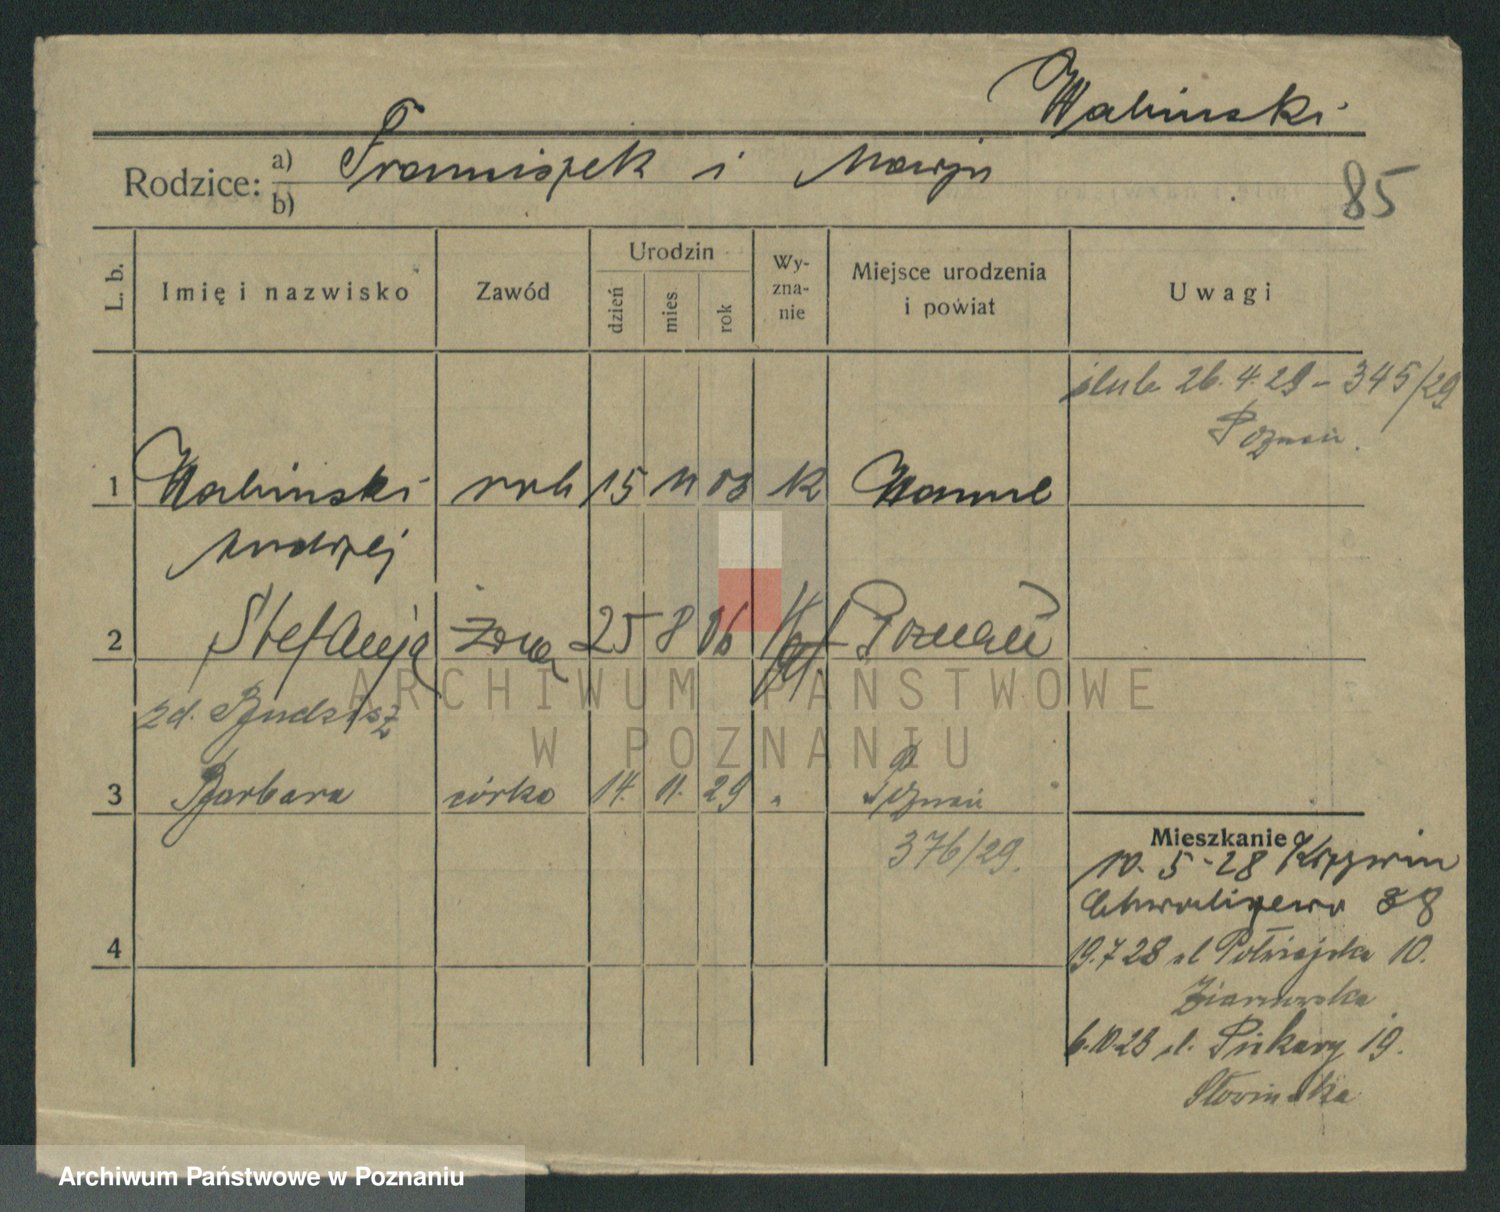 Walinski
Rodzice: a) Franciszek i Maryja
b)
85
L. b.
Imię i nazwisko
Zawód
Urodzin
dzień
mies
rok
Wy-
zna-
nie
Miejsce urodzenia
i powiat
Uwagi
ślub 26.4.29 – 345/29
Poznań.
1 Walinski rob 15 11 03 rk
Andrzej
2 Stefanja żona 25 8 06 Poznań
zd.
3 Barbara córka 14. 11. 29 „ Poznań
376/29.
4
Mieszkanie
10. 5-28
Chwaliszewo 38
19.7 28 ul 10.
6.10.28 ul. Piekary 19.
Słowińska
ARCHIWUM PAŃSTWOWE
W POZNANIU
Archiwum Państwowe w Poznaniu